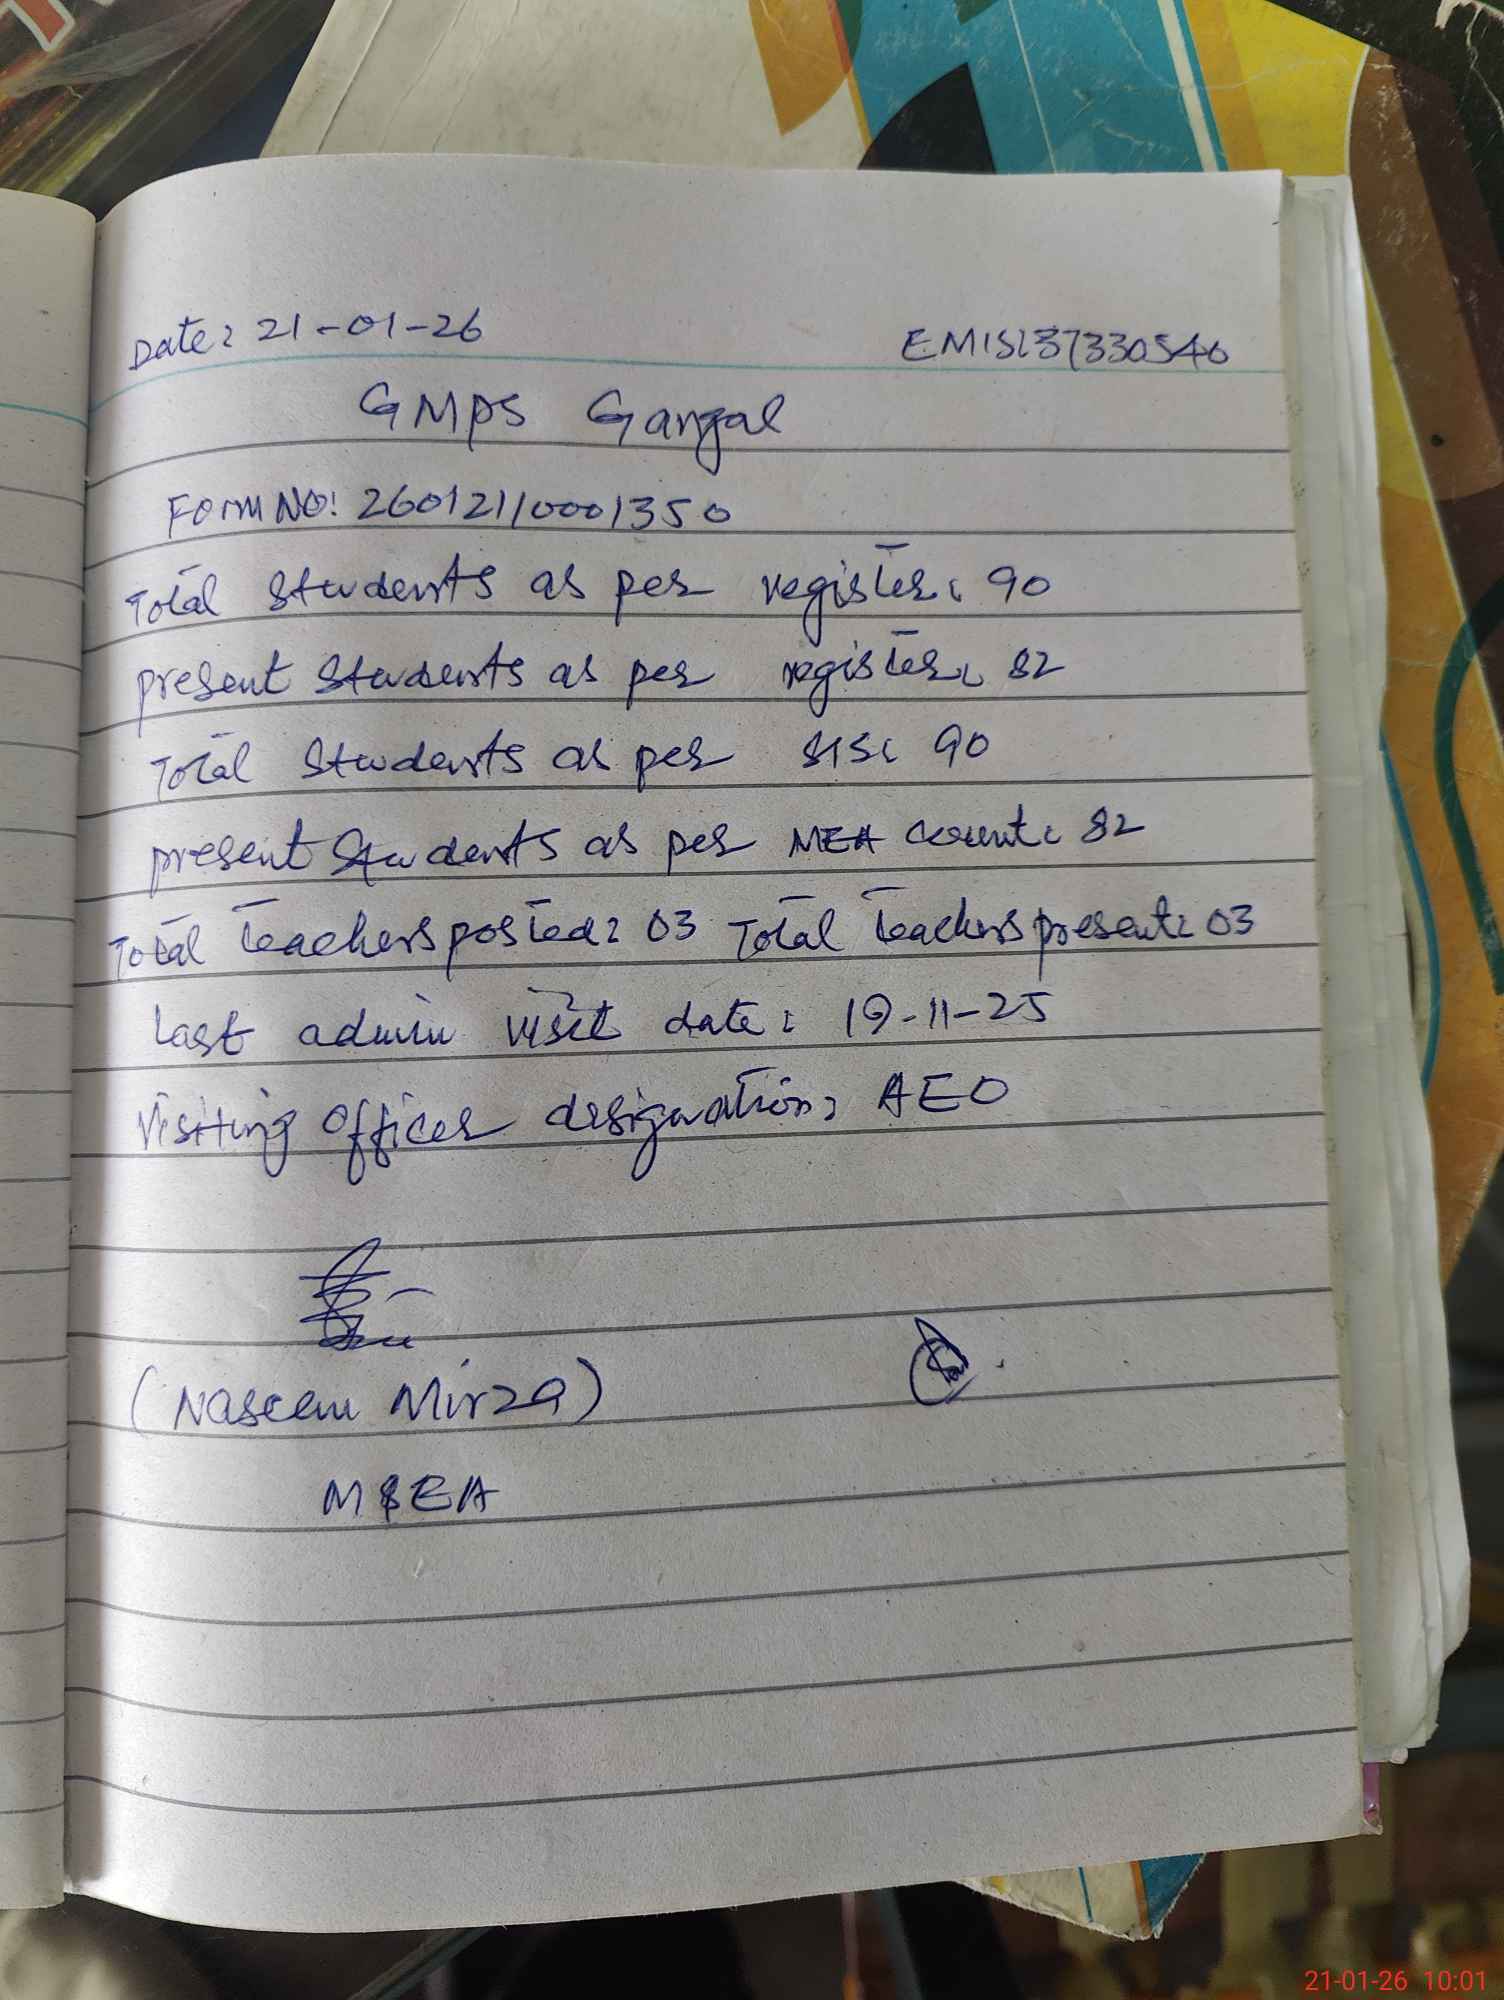 Date: 21-01-26 EMIS: 37330540
GMPS Gangal
Form NO: 26012110001350
Total students as per register: 90
present students as per register: 82
Total students as per SIS: 90
present students as per MEA count: 82
Total teachers posted: 03 Total teachers present: 03
Last admin visit date: 19-11-25
Visiting officer designation: AEO
(Naseem Mirza)
M&EA
21-01-26 10:01